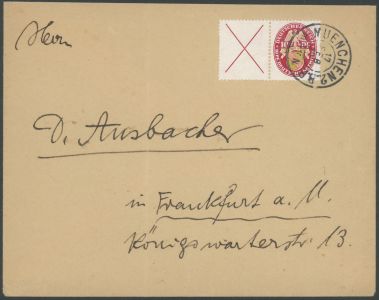 Herrn
D. Ansbacher
in Frankfurt a. M.
Königswarterstr. 13.
MUENCHEN 2